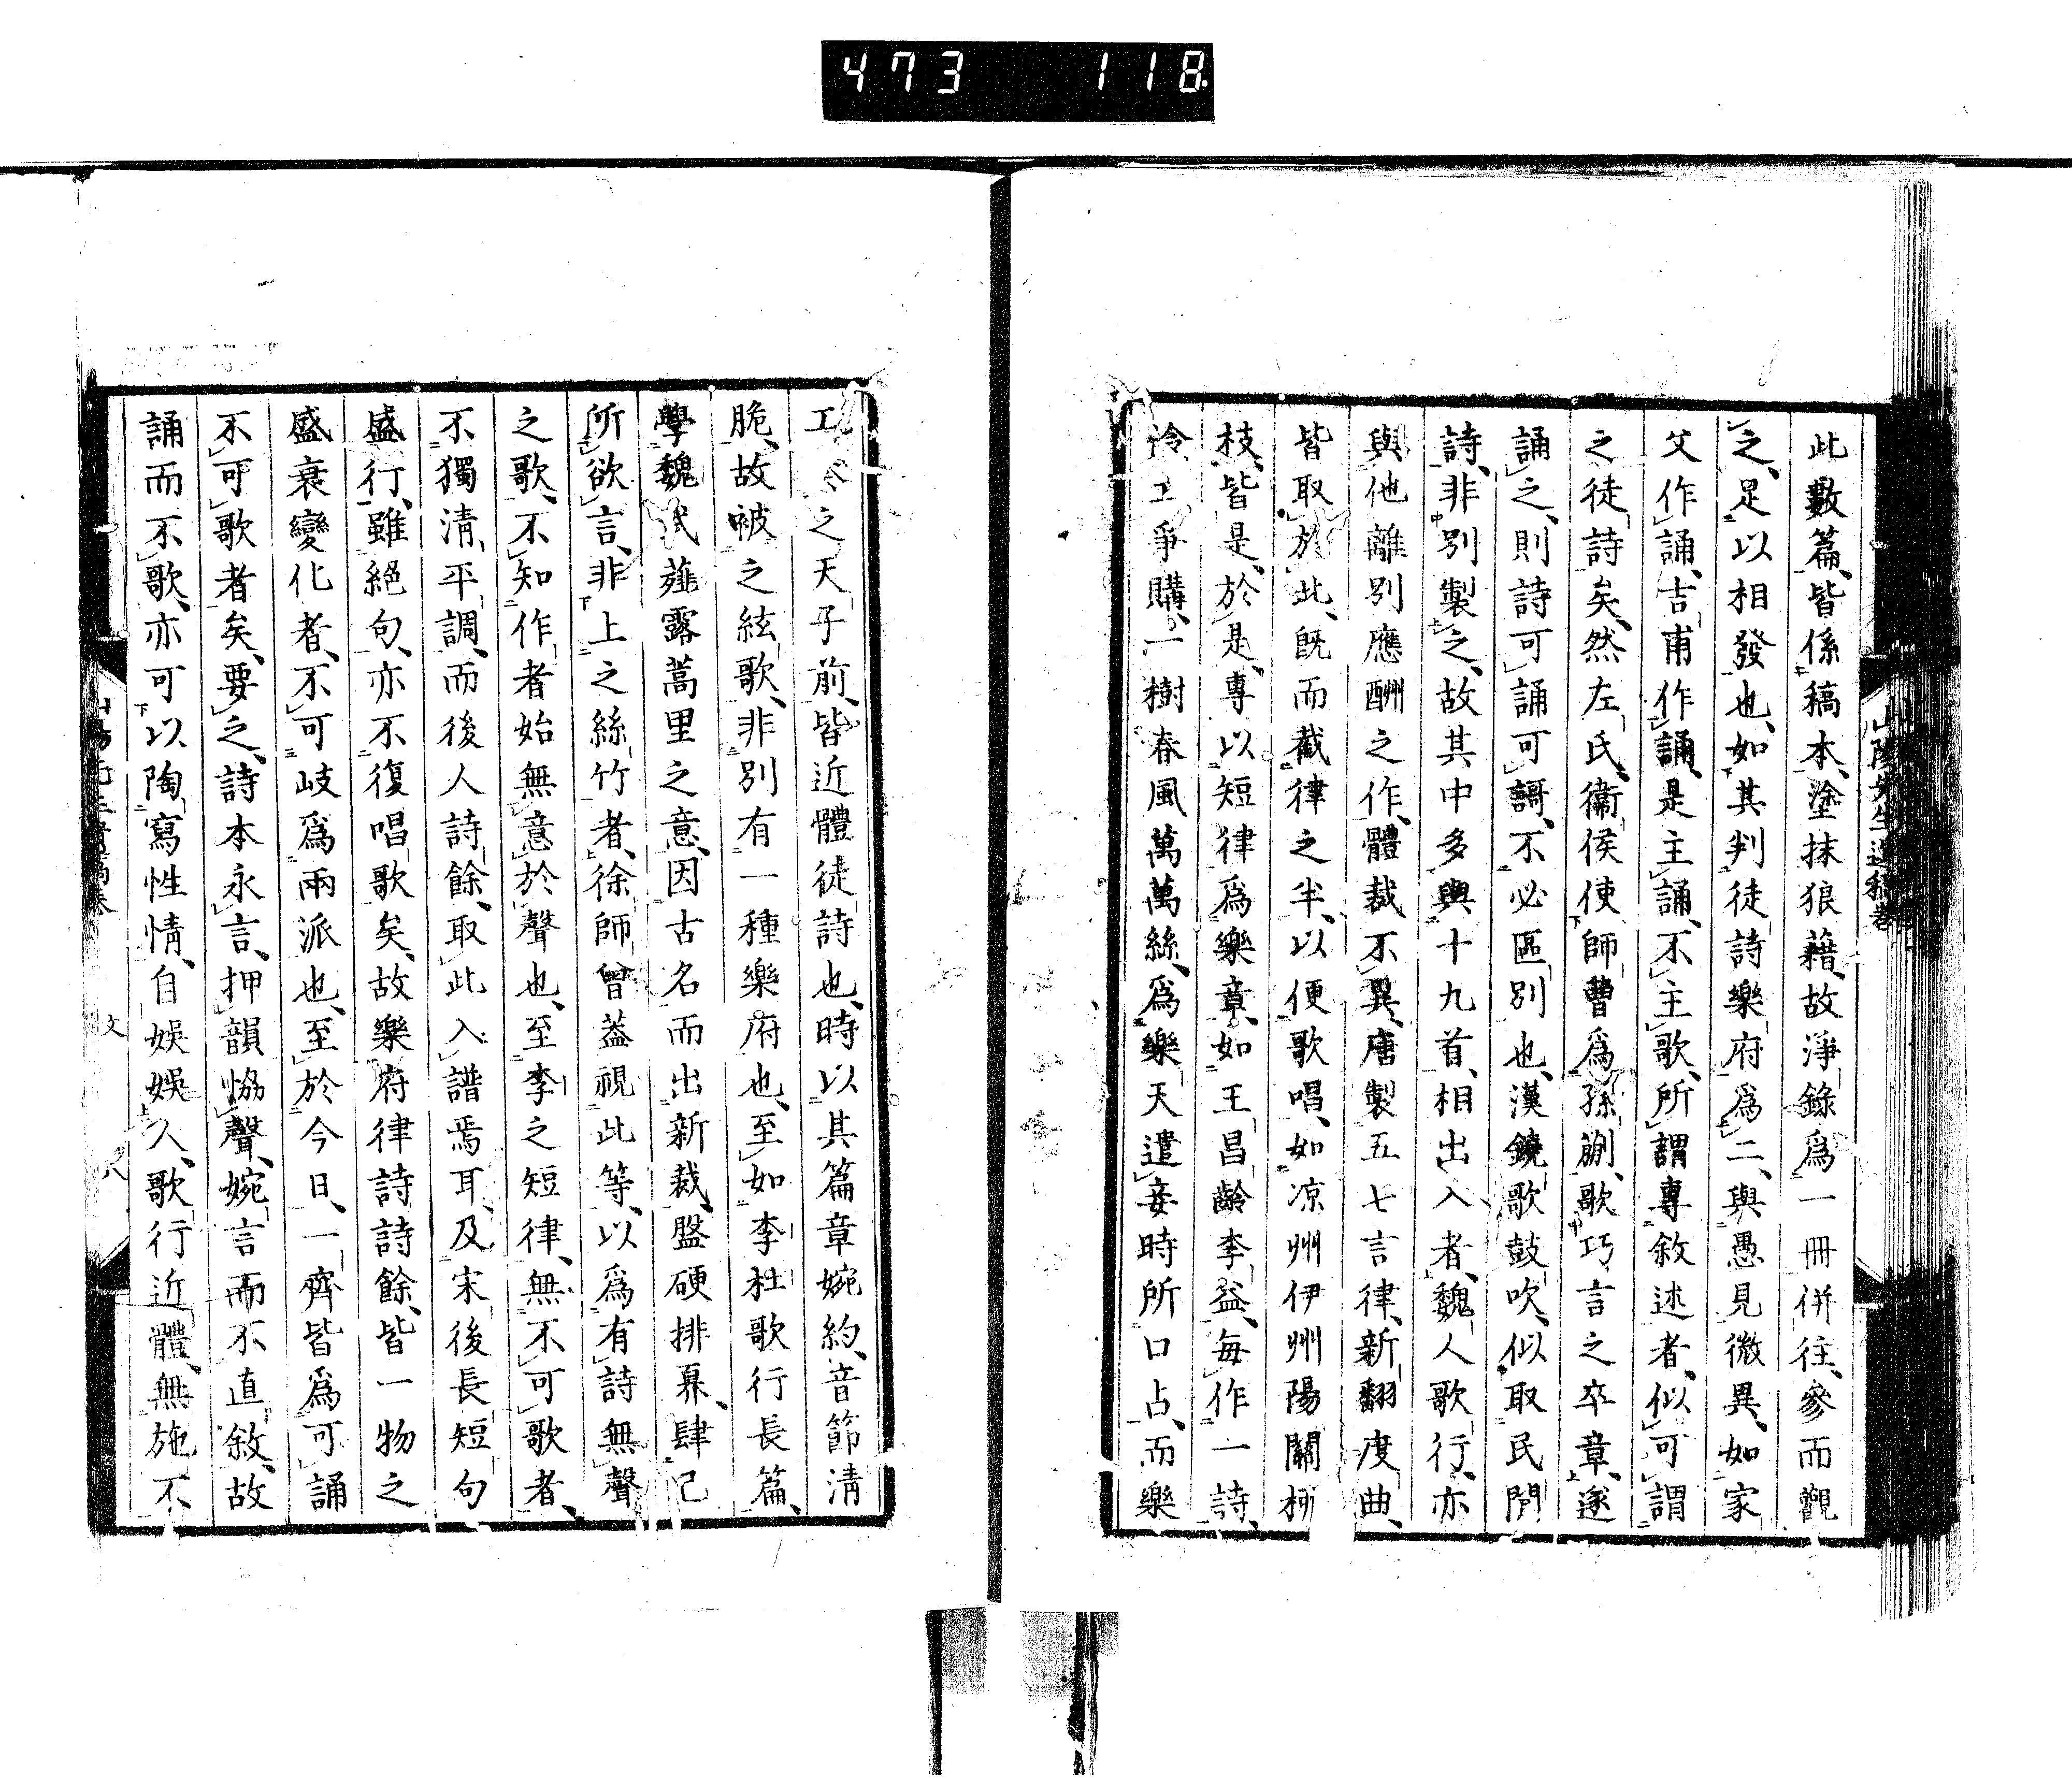 473 118
山陽先生遺稿卷
此數篇、皆係稿本、塗抹狼藉、故淨錄爲一冊併往、參而觀
之、足以相發也、如其判徒詩樂府爲二、與愚見微異、如家
父作誦、吉甫作誦、是主誦、不主歌、所謂專敘述者、似可謂
之徒詩矣、然左氏、衞侯使師曹爲孫蒯、歌巧言之卒章、遂
誦之、則詩可誦可謌、不必區別也、漢鐃歌鼓吹、似取民間
詩、非別製之、故其中多與十九首、相出入者、魏人歌行、亦
與他離別應酬之作、體裁不異、唐製五七言律、新翻度曲、
皆取於此、既而截律之半、以便歌唱、如凉州伊州陽關柳
枝、皆是、於是、專以短律爲樂章、如王昌齡李益、每作一詩、
伶工爭購、一樹春風萬萬絲、爲樂天遣妾時所口占、而樂
工 之天子前、皆近體徒詩也、時以其篇章婉約、音節清
脆、故被之絃歌、非別有一種樂府也、至如李杜歌行長篇、
學魏武薤露蒿里之意、因古名而出新裁、盤硬排奡、肆己
所欲言、非上之絲竹者、徐師曾蓋視此等、以爲有詩無聲
之歌、不知作者始無意於聲也、至李之短律、無不可歌者、
不獨清平調、而後人詩餘、取此入譜焉耳、及宋後長短句
盛行、雖絕句、亦不復唱歌矣、故樂府律詩詩餘、皆一物之
盛衰變化者、不可岐爲兩派也、至於今日、一齊皆爲可誦
不可歌者矣、要之、詩本永言、押韻恊聲、婉言而不直敘、故
誦而不歌、亦可以陶寫性情、自娛娛人、歌行近體、無施不
文
八